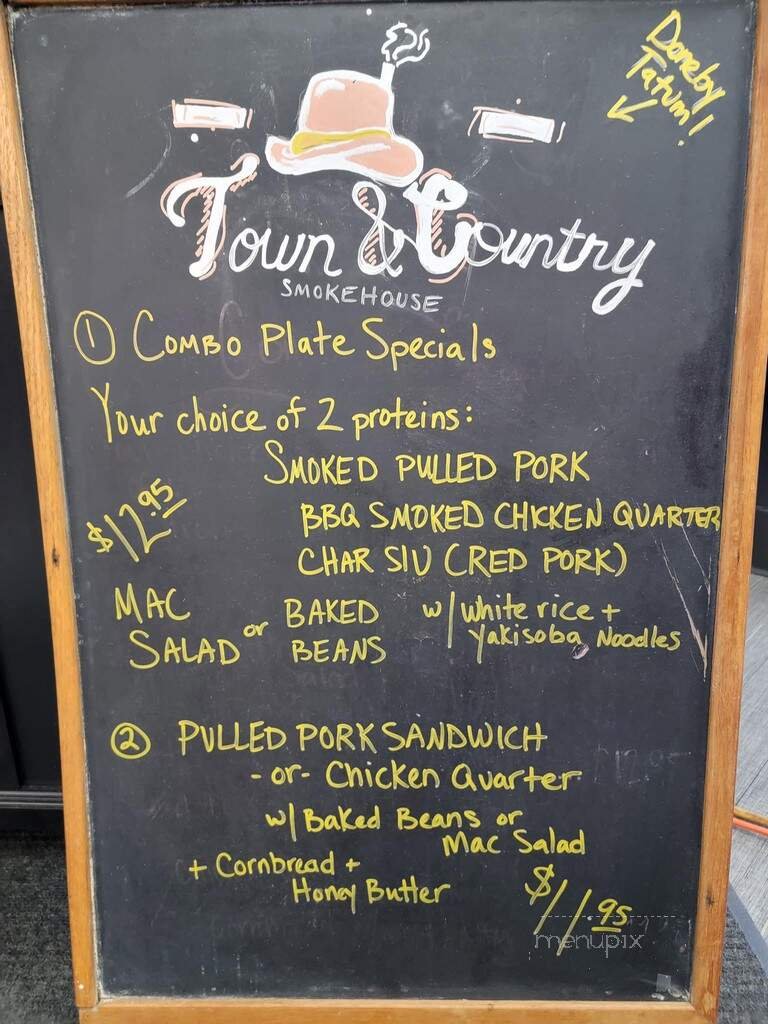 Done by
Tatum!
Town & Country
SMOKEHOUSE
① COMBO Plate Specials
Your choice of 2 proteins:
SMOKED PULLED PORK
$12.95
BBQ SMOKED CHICKEN QUARTER
CHAR SIU (RED PORK)
MAC SALAD or BAKED BEANS w/ white rice + Yakisoba Noodles
② PULLED PORK SANDWICH
-or- Chicken Quarter
w/ Baked Beans or
Mac Salad
+ Cornbread +
Honey Butter
$11.95
menupix